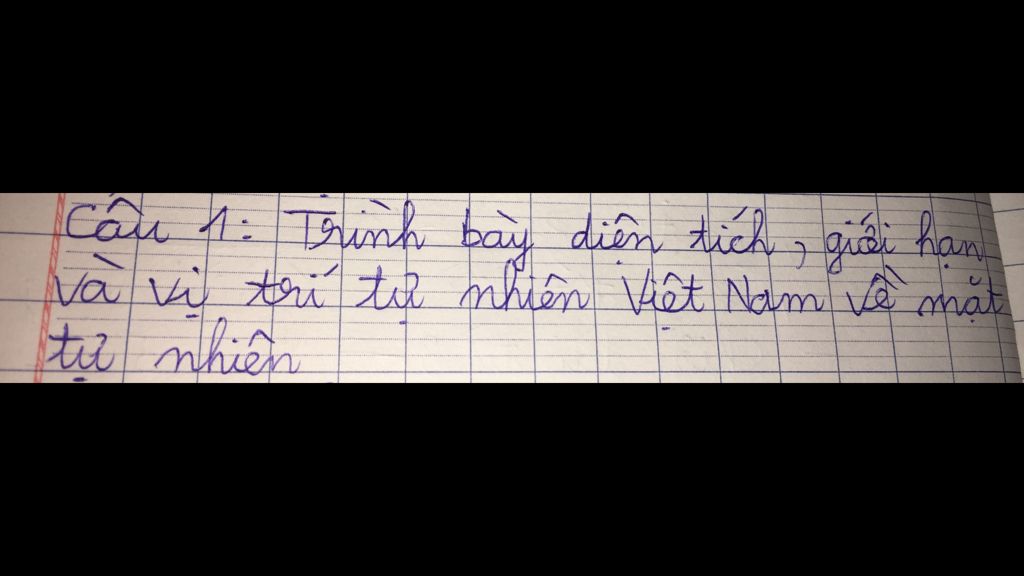 Câu 1: Trình bày diện tích, giới hạn
và vị trí tự nhiên Việt Nam về mặt
tự nhiên